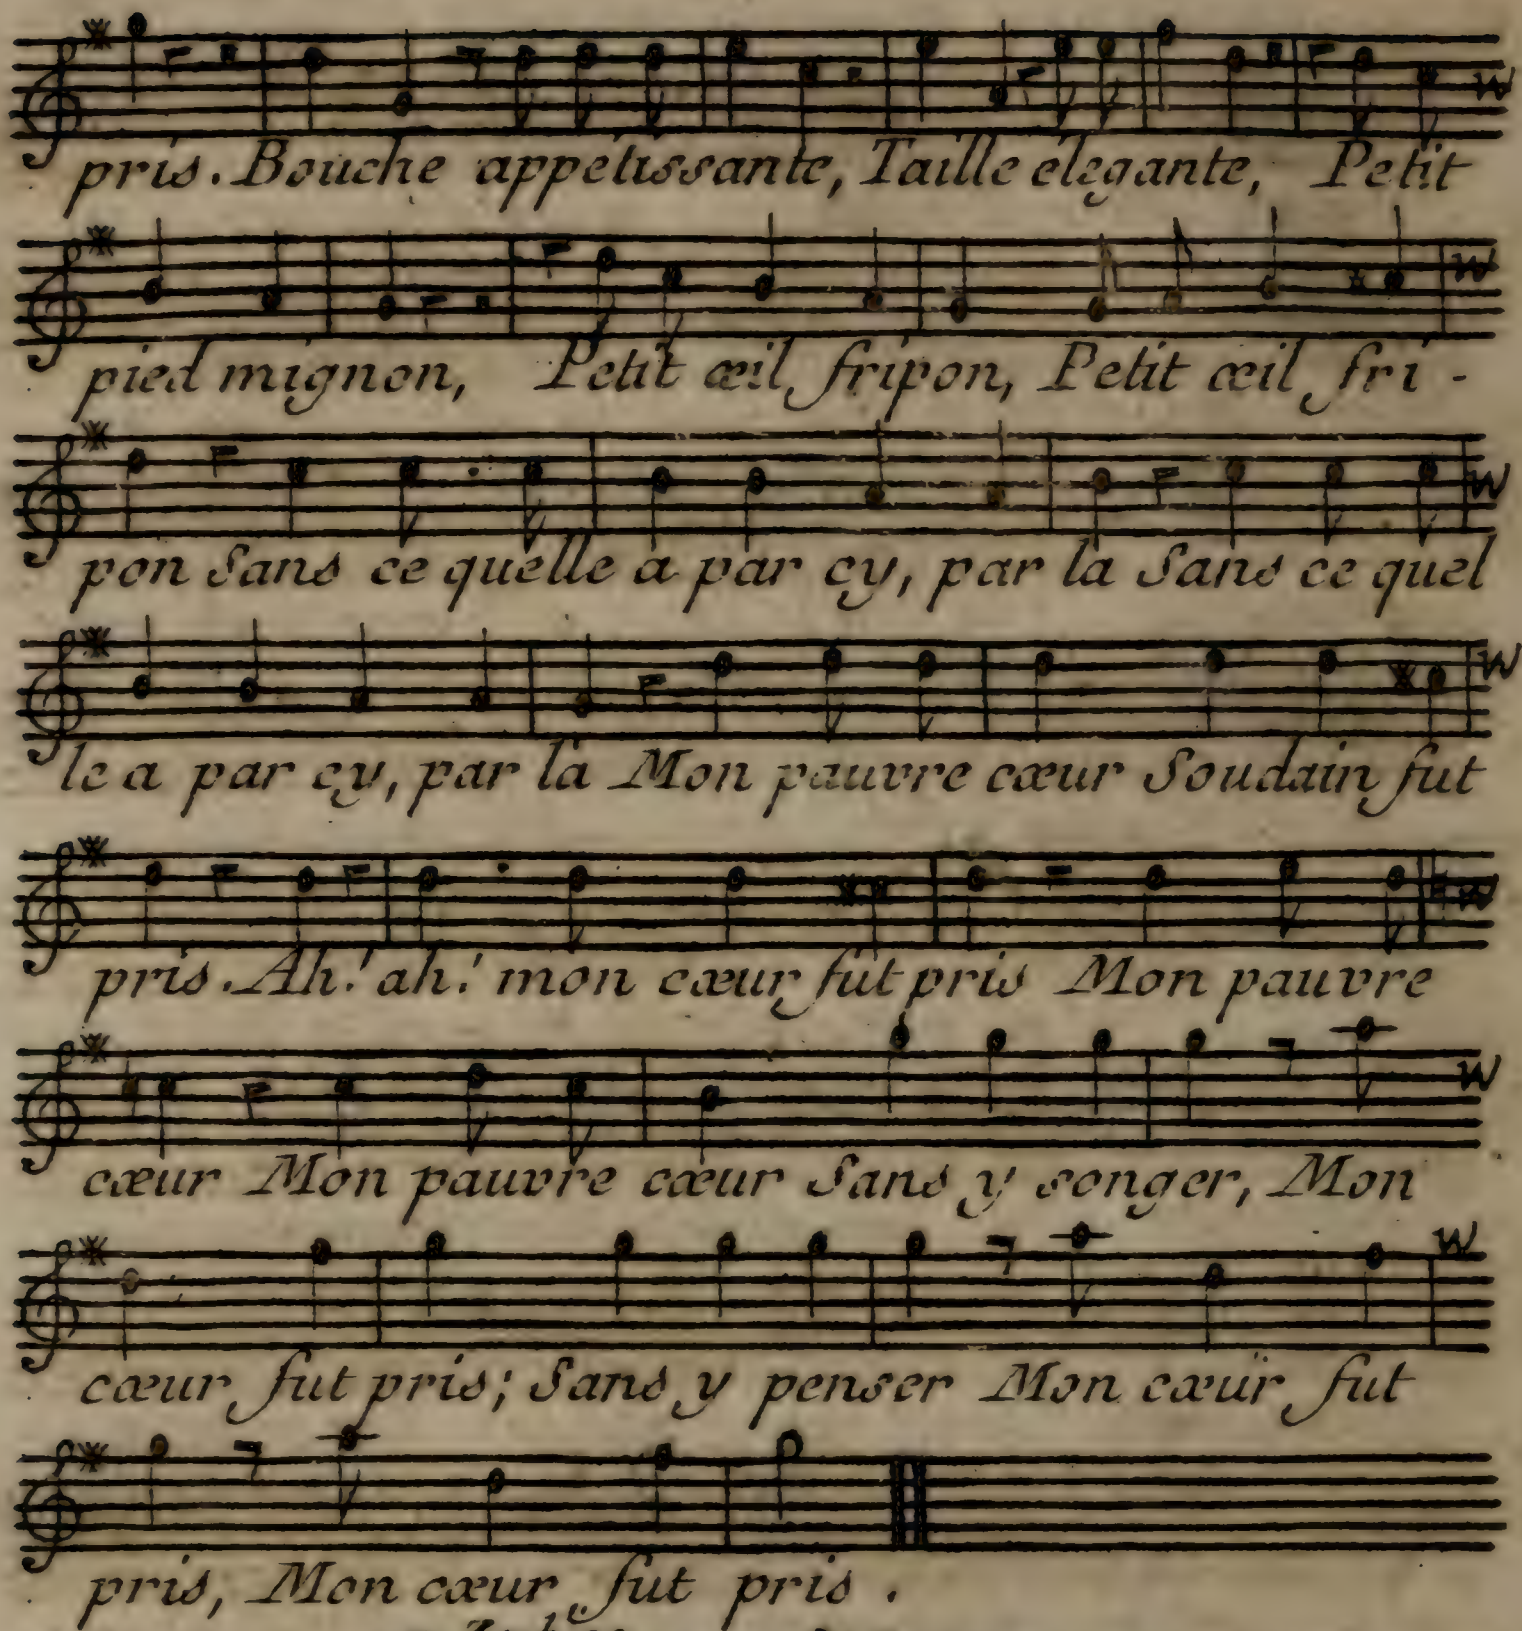 pris. Bouche appetissante, Taille elegante, Petit
pied mignon, Petit œil fripon, Petit œil fri -
pon Sans ce quelle a par cy, par la Sans ce quel
le a par cy, par la Mon pauvre cœur Soudain fut
pris. Ah! ah! mon cœur fut pris Mon pauvre
cœur Mon pauvre cœur Sans y songer, Mon
cœur fut pris; Sans y penser Mon cœur fut
pris, Mon cœur fut pris.